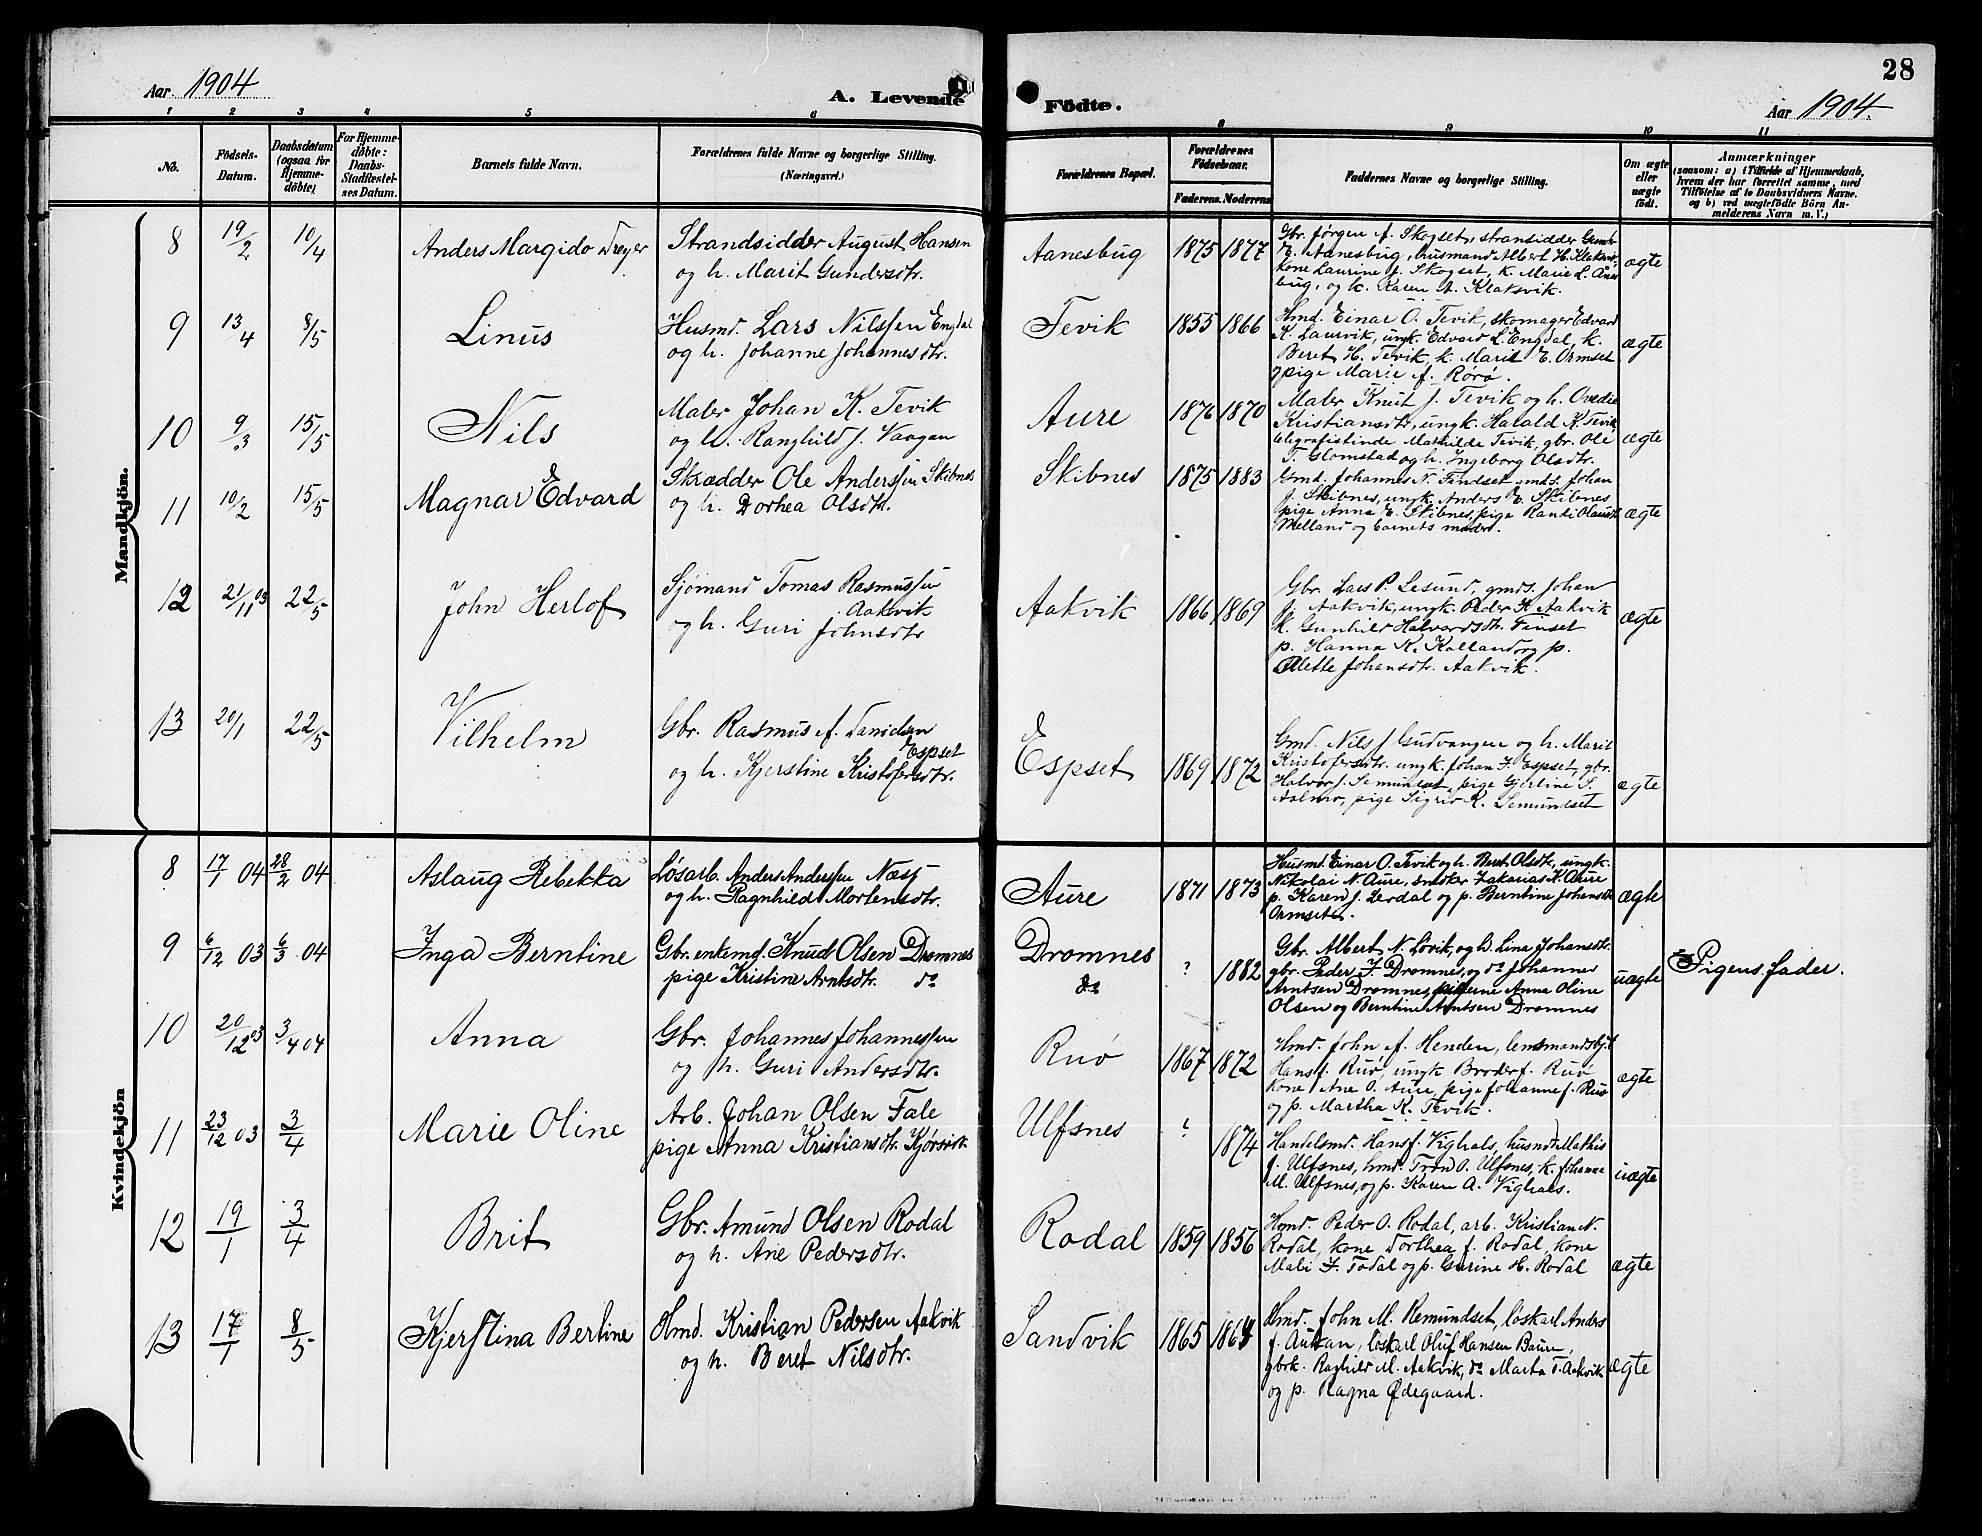 Aar 1904
A. Levende Fødte.
Aar 1904.
28
1 2 3 4 5 6 8 9 10 11
No.
Fødsels-
Datum.
Daabsdatum
(ogsaa for
Hjemme-
døbte)
For Hjemme-
døbte:
Daabs-
Stadfæstel-
ses Datum.
Barnets fulde Navn.
Forældrenes fulde Navne og borgerlige Stilling.
(Næringsvei.)
Forældrenes Bopæl.
Forældrenes
Fødselsaar.
Faderens. Moderens
Faddernes Navne og borgerlige Stilling.
Om ægte
eller
uægte
født.
Anmærkninger
(saasom: a) i Tilfælde af Hjemmedaab,
hvem der har forrettet samme, med
Tilføielse af to Daabsvidners Navne.
og b) ved uægtefødte Børn An-
melderens Navn m. V.)
Mandkjøn.
8 19/2 10/4 Anders Margido Dreyer
Strandsidder August Hansen
og h. Marit Gundersdtr.
Aanesbug 1875 1877
Gbr. Jørgen A. Skogset, stransidder
E. Aanesbug, husmand Albert H. Klaksv.
kone Laurine J. Skogset, k. Marie L. Anes
bug, og k. Karen A. Klaksvik.
ægte
9 13/4 8/5 Linus
Husmd. Lars Nilssen Engdal
og h. Johanne Johannesdtr.
Tevik 1855 1866
Hmd. Einar O. Tevik, skomager Edvard
K. Laurvik, ungk. Edvard L. Engdal, k.
Beret H. Tevik, k. Marit E. Ormset
og pige Marie A. Rørø.
ægte
10 9/3 15/5 Nils
Maler Johan K. Tevik
og h. Ranghild J. Vaagan
Aure 1876 1870
Maler Knut J. Tevik og h. Ovedie
Kristiansdtr, ungk. Harald K. Tevik,
telegrafistinde Mathilde Tevik, gbr. Ole
T. Glomstad og h. Ingeborg Olsdtr.
ægte
11 10/2 15/5 Magnar Edvard
Skrædder Ole Anderssen Skibnes
og h. Dorhea Olsdtr.
Skibnes 1875 1883
Gmd. Johannes N. Findset gmds. Johan
J. Skibnes, ungk. Anders E. Skibnes
pige Anna E. Skibnes, pige Randi Olausdt
Melland og barnets moder.
ægte
12 21/11 03 22/5 John Herlof
Sjømand Tomas Rasmussen
Aakvik
og h. Guri Johnsdtr
Aakvik 1866 1869
Gbr. Lars P. Lesund, gmds. Johan
J. Aakvik, ungk. Peder K. Aakvik
k. Gunhild Halvardsdtr. Finset
p. Hanna K. Kalland og p.
Alette Johansdtr. Aakvik.
ægte
13 20/1 22/5 Vilhelm
Gbr. Rasmus A. Danielsen
Espset
og h. Kjerstine Kristofersdtr.
Espset 1869 1872
Gmd. Nils J Gudvangen og h. Marit
Kristofersdtr. ungk. Johan I. Espset, gbr.
Halvor J. Semundset, pige Gjertine S.
Aalmo, pige Sigrid K. Semundset
ægte
Kvindekjön
8 17/1 04 28/2 04 Aslaug Rebekka
Løsarb. Anders Anderssen Næss
og h. Ragnhild Mortensdtr.
Aure 1871 1873
Husmd. Einar O. Tevik og h. Beret Olsdtr, ungk.
Nikolai N Aure, snekker Zakarias K. Aure
p. Karen J. Lerdal og p. Berntine Johansdt
Ormset.
ægte
9 6/12 03 6/3 04 Inga Berntine
Gbr. enkemd. Knud Olsen Dromnes
pige Kristine Arntsdtr. do
Dromnes
do
? 1882
Gbr. Albert N. Lovik, og h. Lina Johansdtr.
gbr. Peder I. Dromnes, og do Johannes
Arntsen Dromnes, pigerne Anna Oline
Olsen og Berntine Arntsen Dromnes
uægte
Pigens fader.
10 20/12 03 3/4 04 Anna
Gbr. Johannes Johannessen
og h. Guri Andersdtr.
Ruø 1867 1872
Hmd. John A. Henden, lensmandsbjt
Hans J. Ruø, ungk Broder J. Ruø
kone Ane O. Aure pige Johanne J. Ruø
og p. Martha K. Tevik.
ægte
11 23/12 03 3/4 Marie Oline
Arb. Johan Olsen Fale
pige Anna Kristiansdtr. Kjørsvik
Ulfsnes ? 1874
Handelsmd. Hans J. Vighals, husmd. Mathis
J. Ulfsnes, hmd. Tron O. Ulfsnes, k. Johanne
M. Ulfsnes, og p. Karen A. Vighals.
uægte
12 19/1 3/4 Brit
Gbr. Amund Olsen Rodal
og h. Ane Pedersdtr.
Rodal 1859 1856
Hmd. Peder O. Rodal, arb. Kristian N.
Rodal, kone Dorthea J. Rodal, kone
Mali I. Todal og p. Gurine H. Rodal
ægte
13 17/1 8/5 Kjerstina Bertine
Hmd. Kristian Pedersen Aakvik
og h. Beret Nilsdtr.
Sandvik 1865 1864
Hmd. John M. Remundset, loskarl Anders
J. Autkan, loskarl Oluf Hansen Bauen,
gbrk. Raghild M. Aakvik, do Marta T. Aakvik
og p. Ragna Ødegaard.
ægte